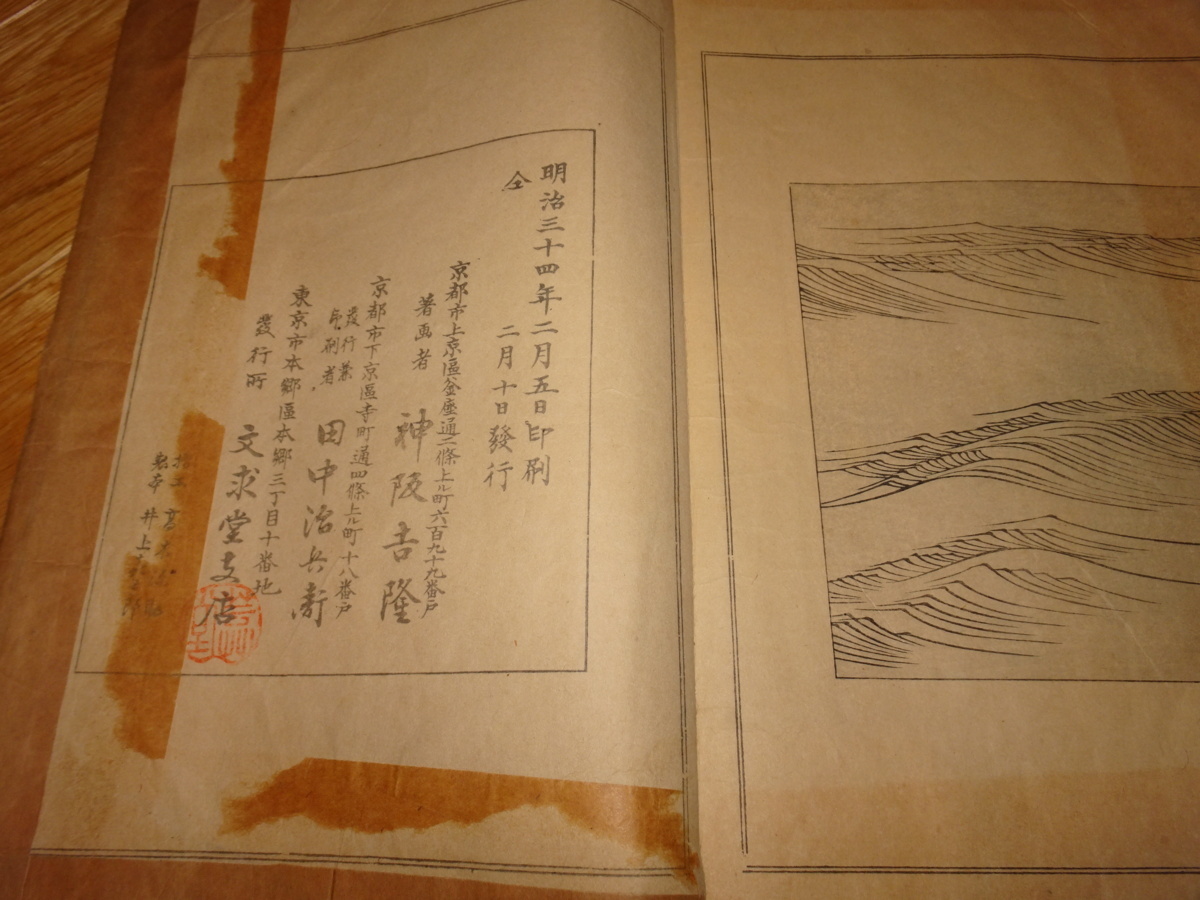 明治三十四年二月五日印刷
仝 二月十日發行
京都市上京區釜座通二條上ル町六百九十九番戸
著画者 神阪吉隆
京都市下京區寺町通四條上ル町十八番戸
發行兼
印刷者 田中治兵衞
東京市本郷區本郷三丁目十番地
發行所 文求堂支店
井上